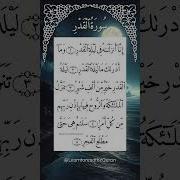 سُورَةُ الْقَدْرِ
إِنَّا أَنزَلْنَٰهُ فِى لَيْلَةِ ٱلْقَدْرِ ۝ وَمَا
أَدْرَىٰكَ مَا لَيْلَةُ ٱلْقَدْرِ ۝ لَيْلَةُ
ٱلْقَدْرِ خَيْرٌ مِّنْ أَلْفِ شَهْرٍ ۝ تَنَزَّلُ
ٱلْمَلَٰٓئِكَةُ وَٱلرُّوحُ فِيهَا بِإِذْنِ رَبِّهِم
مِّن كُلِّ أَمْرٍ ۝ سَلَٰمٌ هِىَ حَتَّىٰ
مَطْلَعِ ٱلْفَجْرِ ۝